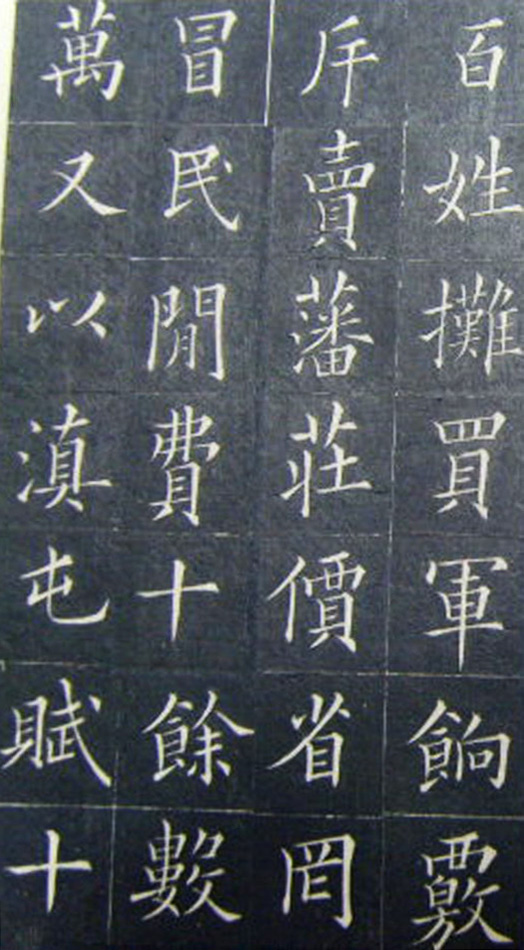 百姓攤買軍餉覈
斥賣藩莊價省罔
冒民閒費十餘數
萬又以滇屯賦十